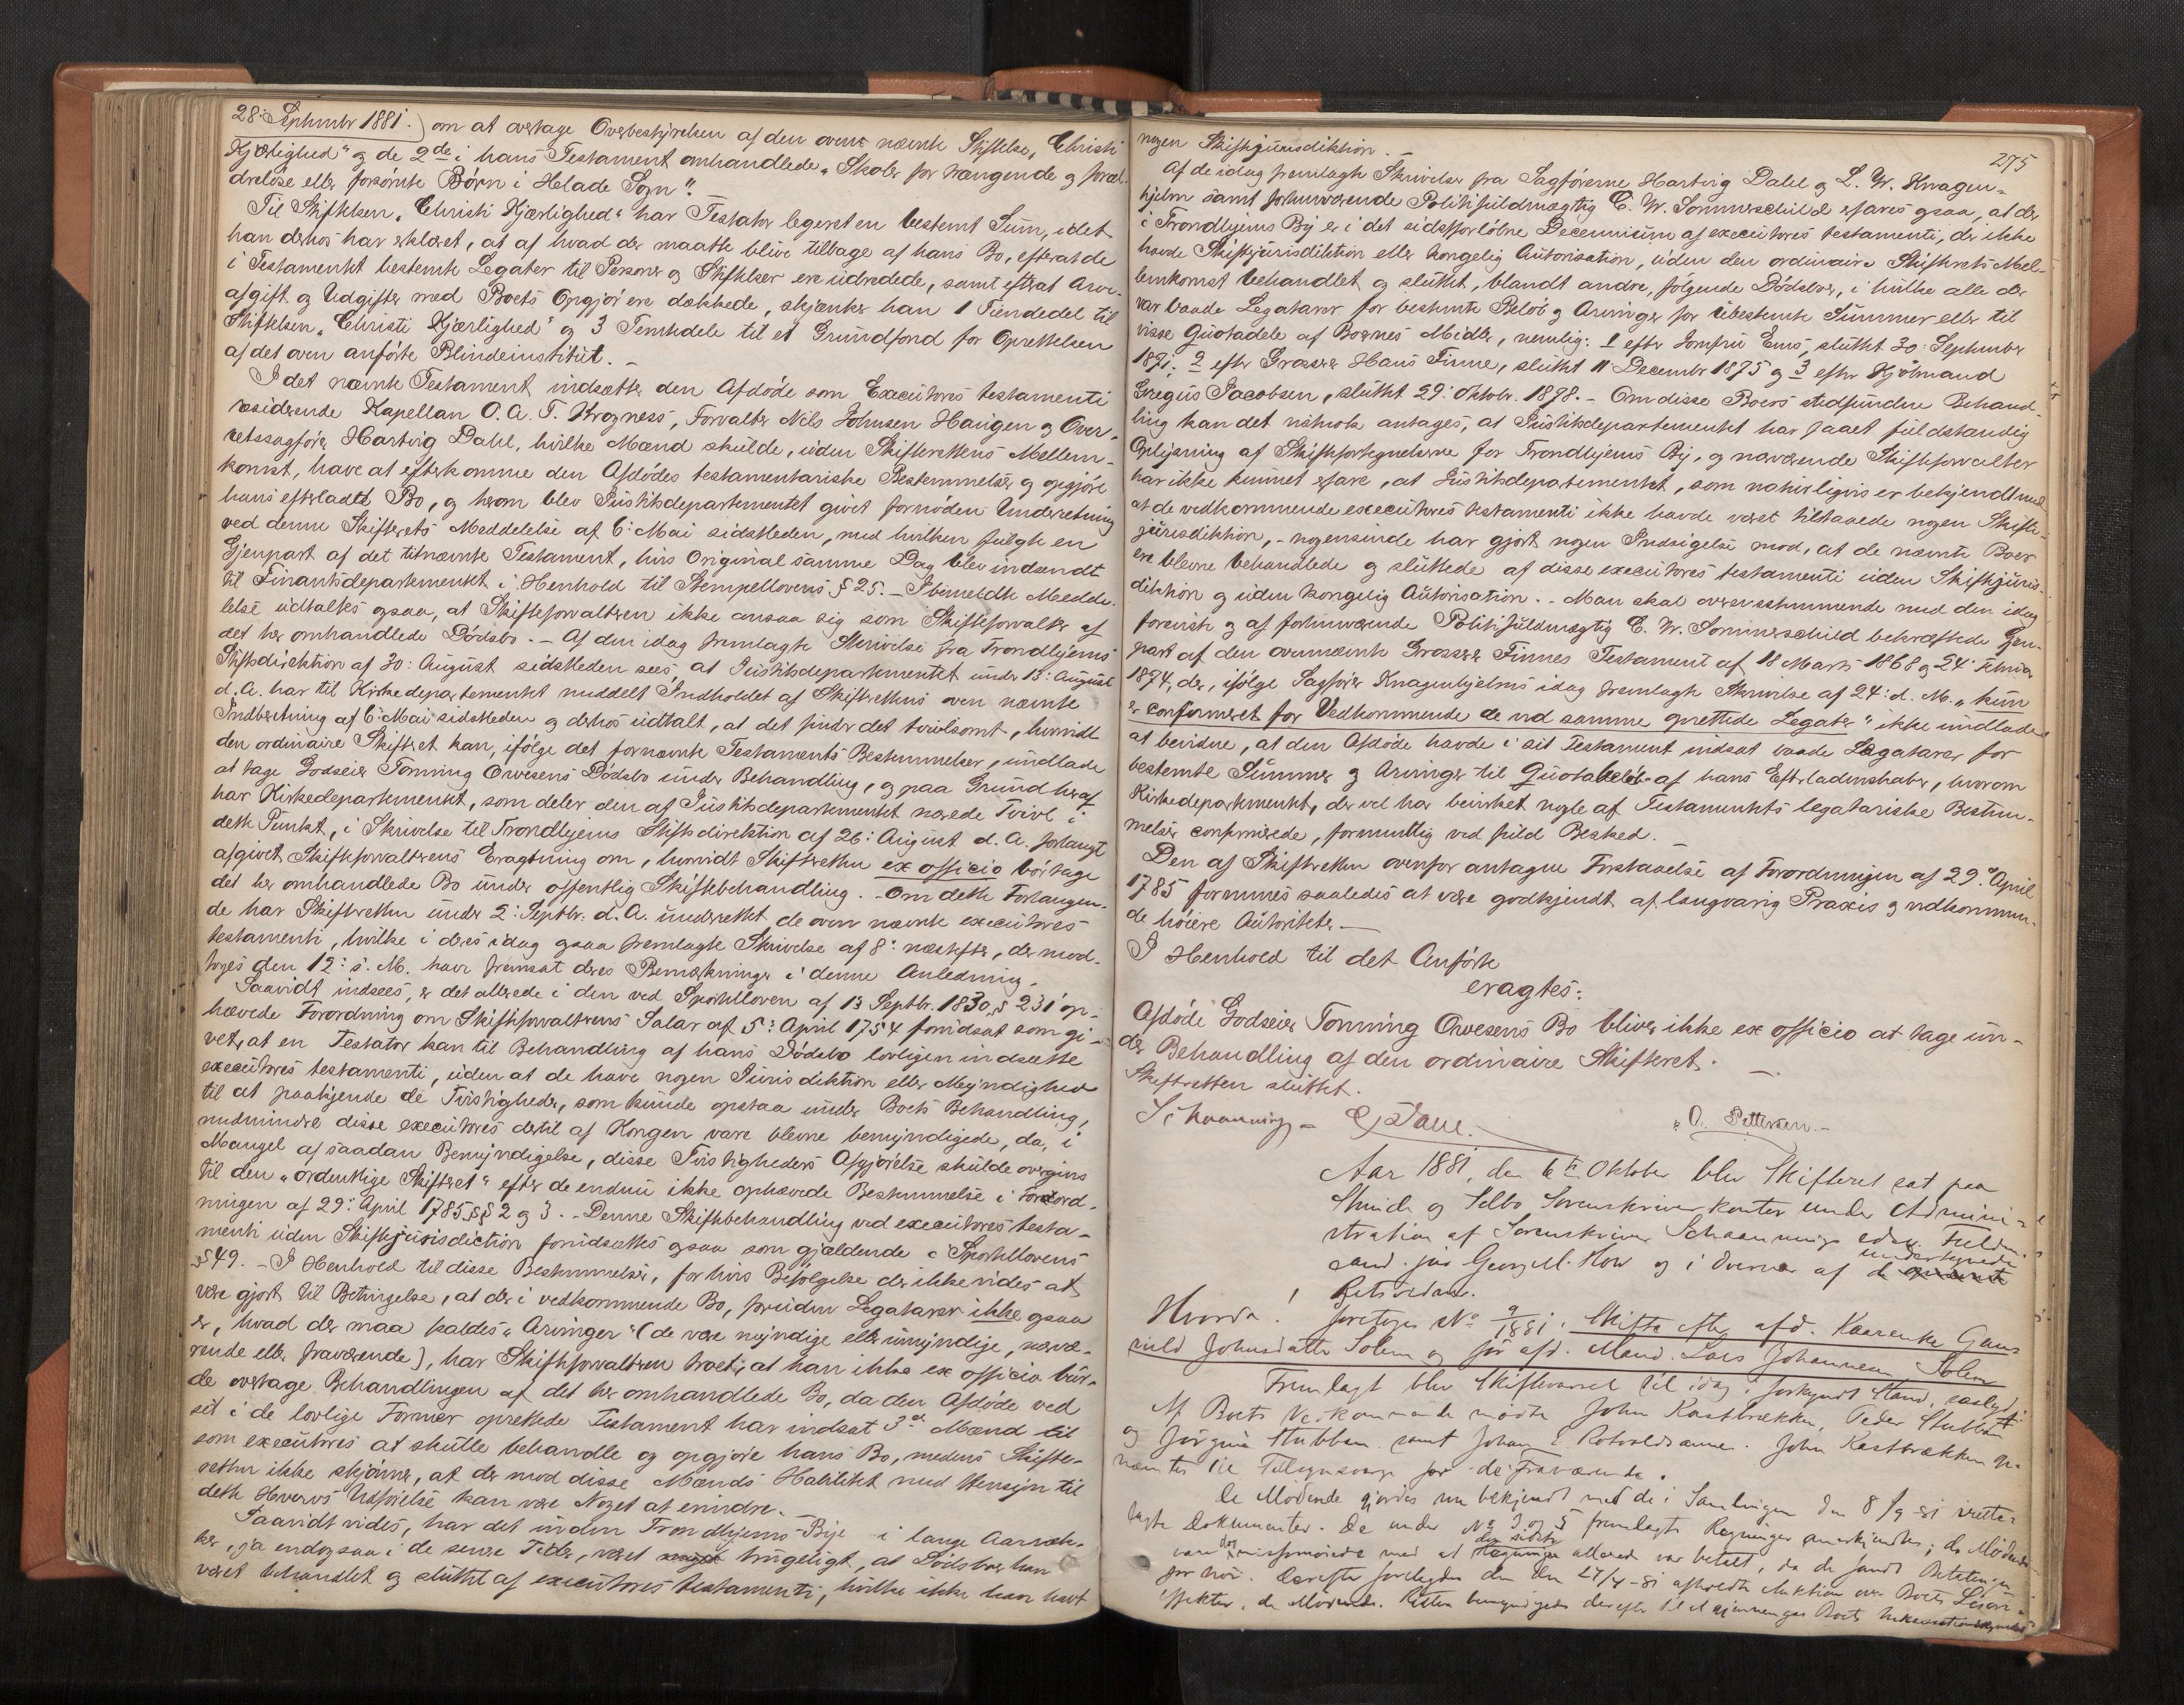 28: September 1881.) om at overtage Overbestyrelsen af den oven nævnte Stiftelse, "Christi
Kjærlighed" og de 2de i hans Testament omhandlede "Skoler for trængende og foræl-
dreløse eller forsømte Børn i Helade Sogn".
Til Stiftelsen "Christi Kjærlighed" har Testator legeret en bestemt Sum, idet
han derhos har erklæret, at af hvad der maatte blive tilbage af hans Bo, efterat de
i Testamentet bestemte Legater til Personer og Stiftelser ere udredede, samt efterat Arve-
afgift og Udgifter med Boets Opgjør ere dækkede, skjænker han 1 Tiendedel til
Stiftelsen "Christi Kjærlighed" og 3 Tiendedele til et Grundfond for Oprettelsen
af det oven anførte Blindeinstitut. –
I det nævnte Testament indsætter den Afdøde som Executores testamenti
residerende Kapellan O. A. T. Krogness, Forvalter Nils Johnsen Haugen og Over-
retssagfører Hartvig Dahl, hvilke Mænd skulde, uden Skifterettens Mellem-
komst, have at efterkomme den Afdødes testamentariske Bestemmelser og opgjøre
hans efterladte Bo, og herom blev Justitsdepartementet givet fornøden Underretning
ved denne Skifterets Meddelelse af 6: Mai sidstleden, med hvilken fulgte en
Gjenpart af det titnævnte Testament, hvis Original samme Dag blev indsendt
til Finantsdepartementet i Henhold til Stempellovens § 25. – I bemeldte Medde-
lelse udtaltes ogsaa, at Skifteforvalteren ikke ansaa sig som Skifteforvalter af
det her omhandlede Dødsbo. – Af den idag fremlagte Skrivelse fra Trondhjems
Stiftsdirektion af 30: August sidstleden sees, at Justitsdepartementet under 13: August
d. A. har til Kirkedepartementet meddelt Indholdet af Skifterettens oven nævnte
Indberetning af 6: Mai sidstleden og derhos udtalt, at det finder det tvivlsomt, hvorvidt
den ordinaire Skifteret kan, ifølge det fornævnte Testaments Bestemmelser, undlade
at tage Godseier Tonning Owesens Dødsbo under Behandling, og paa Grund heraf
har Kirkedepartementet, som deler den af Justitsdepartementet nærede Tvivl i
dette Punkt, i Skrivelse til Trondhjems Stiftsdirektion af 26: August d. A. forlangt
afgivet Skifteforvalterens Eragtning om, hvorvidt Skifteretten ex officio bør tage
det her omhandlede Bo under offentlig Skiftebehandling. – Om dette Forlangen-
de har Skifteretten under 2: Septbr. d. A. underrettet de oven nævnte executores
testamenti, hvilke i deres idag ogsaa fremlagte Skrivelse af 8: næstefter, der mod-
toges den 12: s. M. have fremsat deres Bemærkninger i denne Anledning.
Saavidt indsees, er det allerede i den ved Sportelloven af 13 Septbr. 1830, § 231 op-
hævede Forordning om Skifteforvalterens Salar af 5: April 1754 forudsat som gi-
vet, at en Testator kan til Behandling af hans Dødsbo lovligen indsætte
executores testamenti, uden at de have nogen Jurisdiktion eller Myndighed
til at paakjende de Tvistigheder, som kunde opstaa under Boets Behandling,
medmindre disse executores dertil af Kongen vare blevne bemyndigede, da, i
Mangel af saadan Bemyndigelse, disse Tvistigheders Afgjørelse skulde overgives
til den "ordentlige Skifteret" efter de endnu ikke ophævede Bestemmelse i Forord-
ningen af 29: April 1785, §§ 2 og 3. – Denne Skiftebehandling ved executores testa-
menti uden Skiftejurisdiction forudsættes ogsaa som gjældende i Sportellovens
§ 49. – I Henhold til disse Bestemmelser, for hvis Befølgelse der ikke vides at
være gjort til Betingelse, at der i vedkommende Bo, foruden Legatarer ikke ogsaa
er, hvad der maa kaldes "Arvinger" (de være myndige eller umyndige, nærvæ-
rende eller fraværende), har Skifteforvalteren troet, at han ikke ex officio bur-
de overtage Behandlingen af det her omhandlede Bo, da den Afdøde ved
sit i de lovlige Former oprettede Testament har indsat 3de Mænd til
som executores at skulle behandle og opgjøre hans Bo, medens Skifte-
retten ikke skjønner, at der mod disse Mænds Habilitet med Hensyn til
dette Hvervs Udførelse kan være Noget at erindre. –
Saavidt vides, har det inden Trondhjems Bye i lange Aarræk-
ker, ja endogsaa i de senere Tider, været brugeligt, at Dødsboer har
været behandlet og sluttet af executores testamenti, hvilke ikke have havt
275
nogen Skiftejurisdiktion. –
Af de idag fremlagte Skrivelser fra Sagførerne Hartvig Dahl og L. W. Knagen-
hjelm samt forhenværende Politifuldmægtig C. W. Sommerschild erfares ogsaa, at der
i Trondhjems By er i det sidstforløbne Decennium af executores testamenti, der ikke
havde Skiftejurisdiktion eller kongelig Autorisation, uden den ordinaire Skifterets Mel-
lemkomst behandlet og sluttet, blandt andre, følgende Dødsboer, i hvilke alle der
var baade Legatarer for bestemte Beløb og Arvinger for ubestemte Summer eller til
visse Quotadele af Boernes Midler, nemlig: 1 efter Jomfru Ems, sluttet 30: September
1871; 2 efter Grosser Hans Finne, sluttet 11 Decembr 1875 og 3 efter Kjøbmand
Gregus Jacobsen, sluttet 29: Oktobr. 1878. – Om disse Boers stedfundne Behand-
ling kan det nok antages, at Justitsdepartementet har faaet fuldstændig
Oplysning af Skiftefortegnelserne for Trondhjems By, og nærværende Skifteforvalter
har ikke kunnet erfare, at Justitsdepartementet, som naturligvis er bekjendt med
at de vedkommende executores testamenti ikke havde været tilstaaede nogen Skifte-
jurisdiktion, – nogensinde har gjort nogen Indsigelse mod, at de nævnte Boer
ere blevne behandlede og sluttede af disse executores testamenti uden Skiftejuris-
diktion og uden kongelig Autorisation. – Man skal overensstemmende med den idag
foreviste og af forhenværende Politifuldmægtig C. W. Sommerschild bekræftede Gjen-
part af den ovennævnte Grosser Finnes Testament af 18 Marts 1868 og 24: Februar
1874, der, ifølge Sagfører Knagenhjelms idag fremlagte Skrivelse af 24: d. M. "kun
er confirmeret for Vedkommende de ved samme oprettede Legater" ikke undlade
at bevidne, at den Afdøde havde i sit Testament indsat baade Legatarer for
bestemte Summer og Arvinger til Quotabeløb af hans Efterladenskaber, hvorom
Kirkedepartementet, der vel har bevirket nogle af Testamentets legatariske Bestem-
melser confirmerede, formentlig ved fuld Besked. –
Den af Skifteretten ovenfor antagne Forstaaelse af Forordningen af 29: April
1785 formenes saaledes at være godkjendt af langvarig Praxis og vedkommen-
de høiere Autoriteter. –
I Henhold til det Anførte
eragtes:
Afdøde Godseier Tonning Owesens Bo bliver ikke ex officio at tage un-
der Behandling af den ordinaire Skifteret. –
Skifteretten sluttet.
Schaanning – O. Pettersen. –
Aar 1881, den 6te Oktober blev Skifteret sat paa
Strinde og Selbo Sorenskriverkontor under Admini-
stration af Sorenskriver Schaanning ved Fuldm.
cand. jur. Georg M. How og i Overvær af de undertegnede
Retsvidner.
Hvorda! foretoges No 9/1881: Skifte efter afd. Kaarenke Gun-
nild Johnsdatter Solem og før afd. Mand Lars Johannesen Solem
Fremlagt blev Skiftevarsel til idag i forkyndt Stand, saalyd:
Af Boets Vedkommende mødte John Kastbrækken, Peder Stubban
og Jørgina Stubban samt Johan E. Rotvoldsaunet. John Kastbrækken ud-
nævntes til Tilsynsværge for de Fraværende.
De Mødende gjordes nu bekjendt med de i Samlingen den 8/9-81 irette-
lagte Dokumenter. De under No 3 og 5 fremlagte Regninger anerkjendtes; de Mødende
vare dog misfornøiede med at den sidste allerede var betalt, da de fandt Betalingen
for høi. Derefter forelagdes den den 27/4-81 afholdte Auktion over Boets Løsøre-
effekter, de Mødende. Retten bemyndigedes derefter til at gjennemgaa Boets